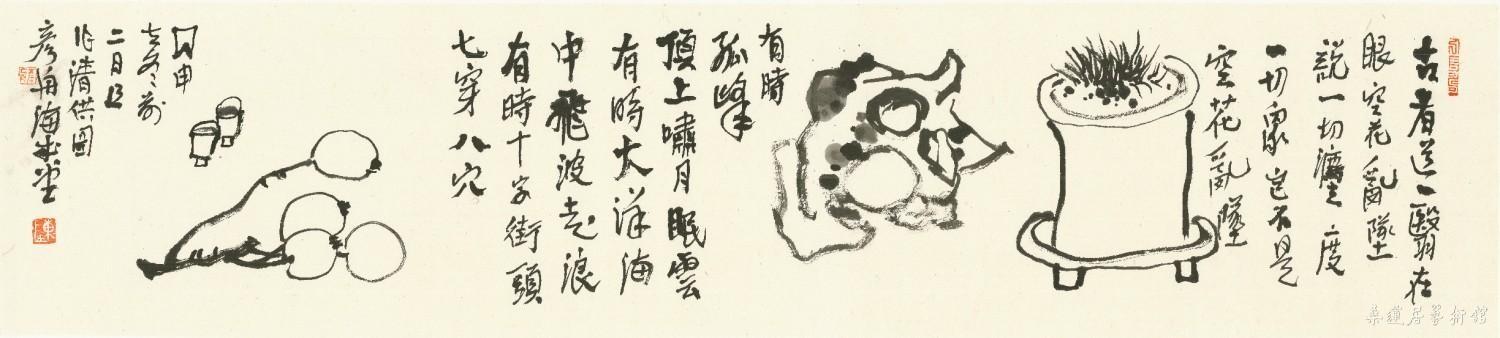 古者道一翳在
眼空花亂墜
說一切塵度
一切眾岂不是
空花亂墜
有時
孤峰
頂上嘯月眠雲
有時大洋海
中飛波走浪
有時十字街頭
七穿八穴
甲申
冬前
二日
作清供圖
海
桑蓮居藝術館